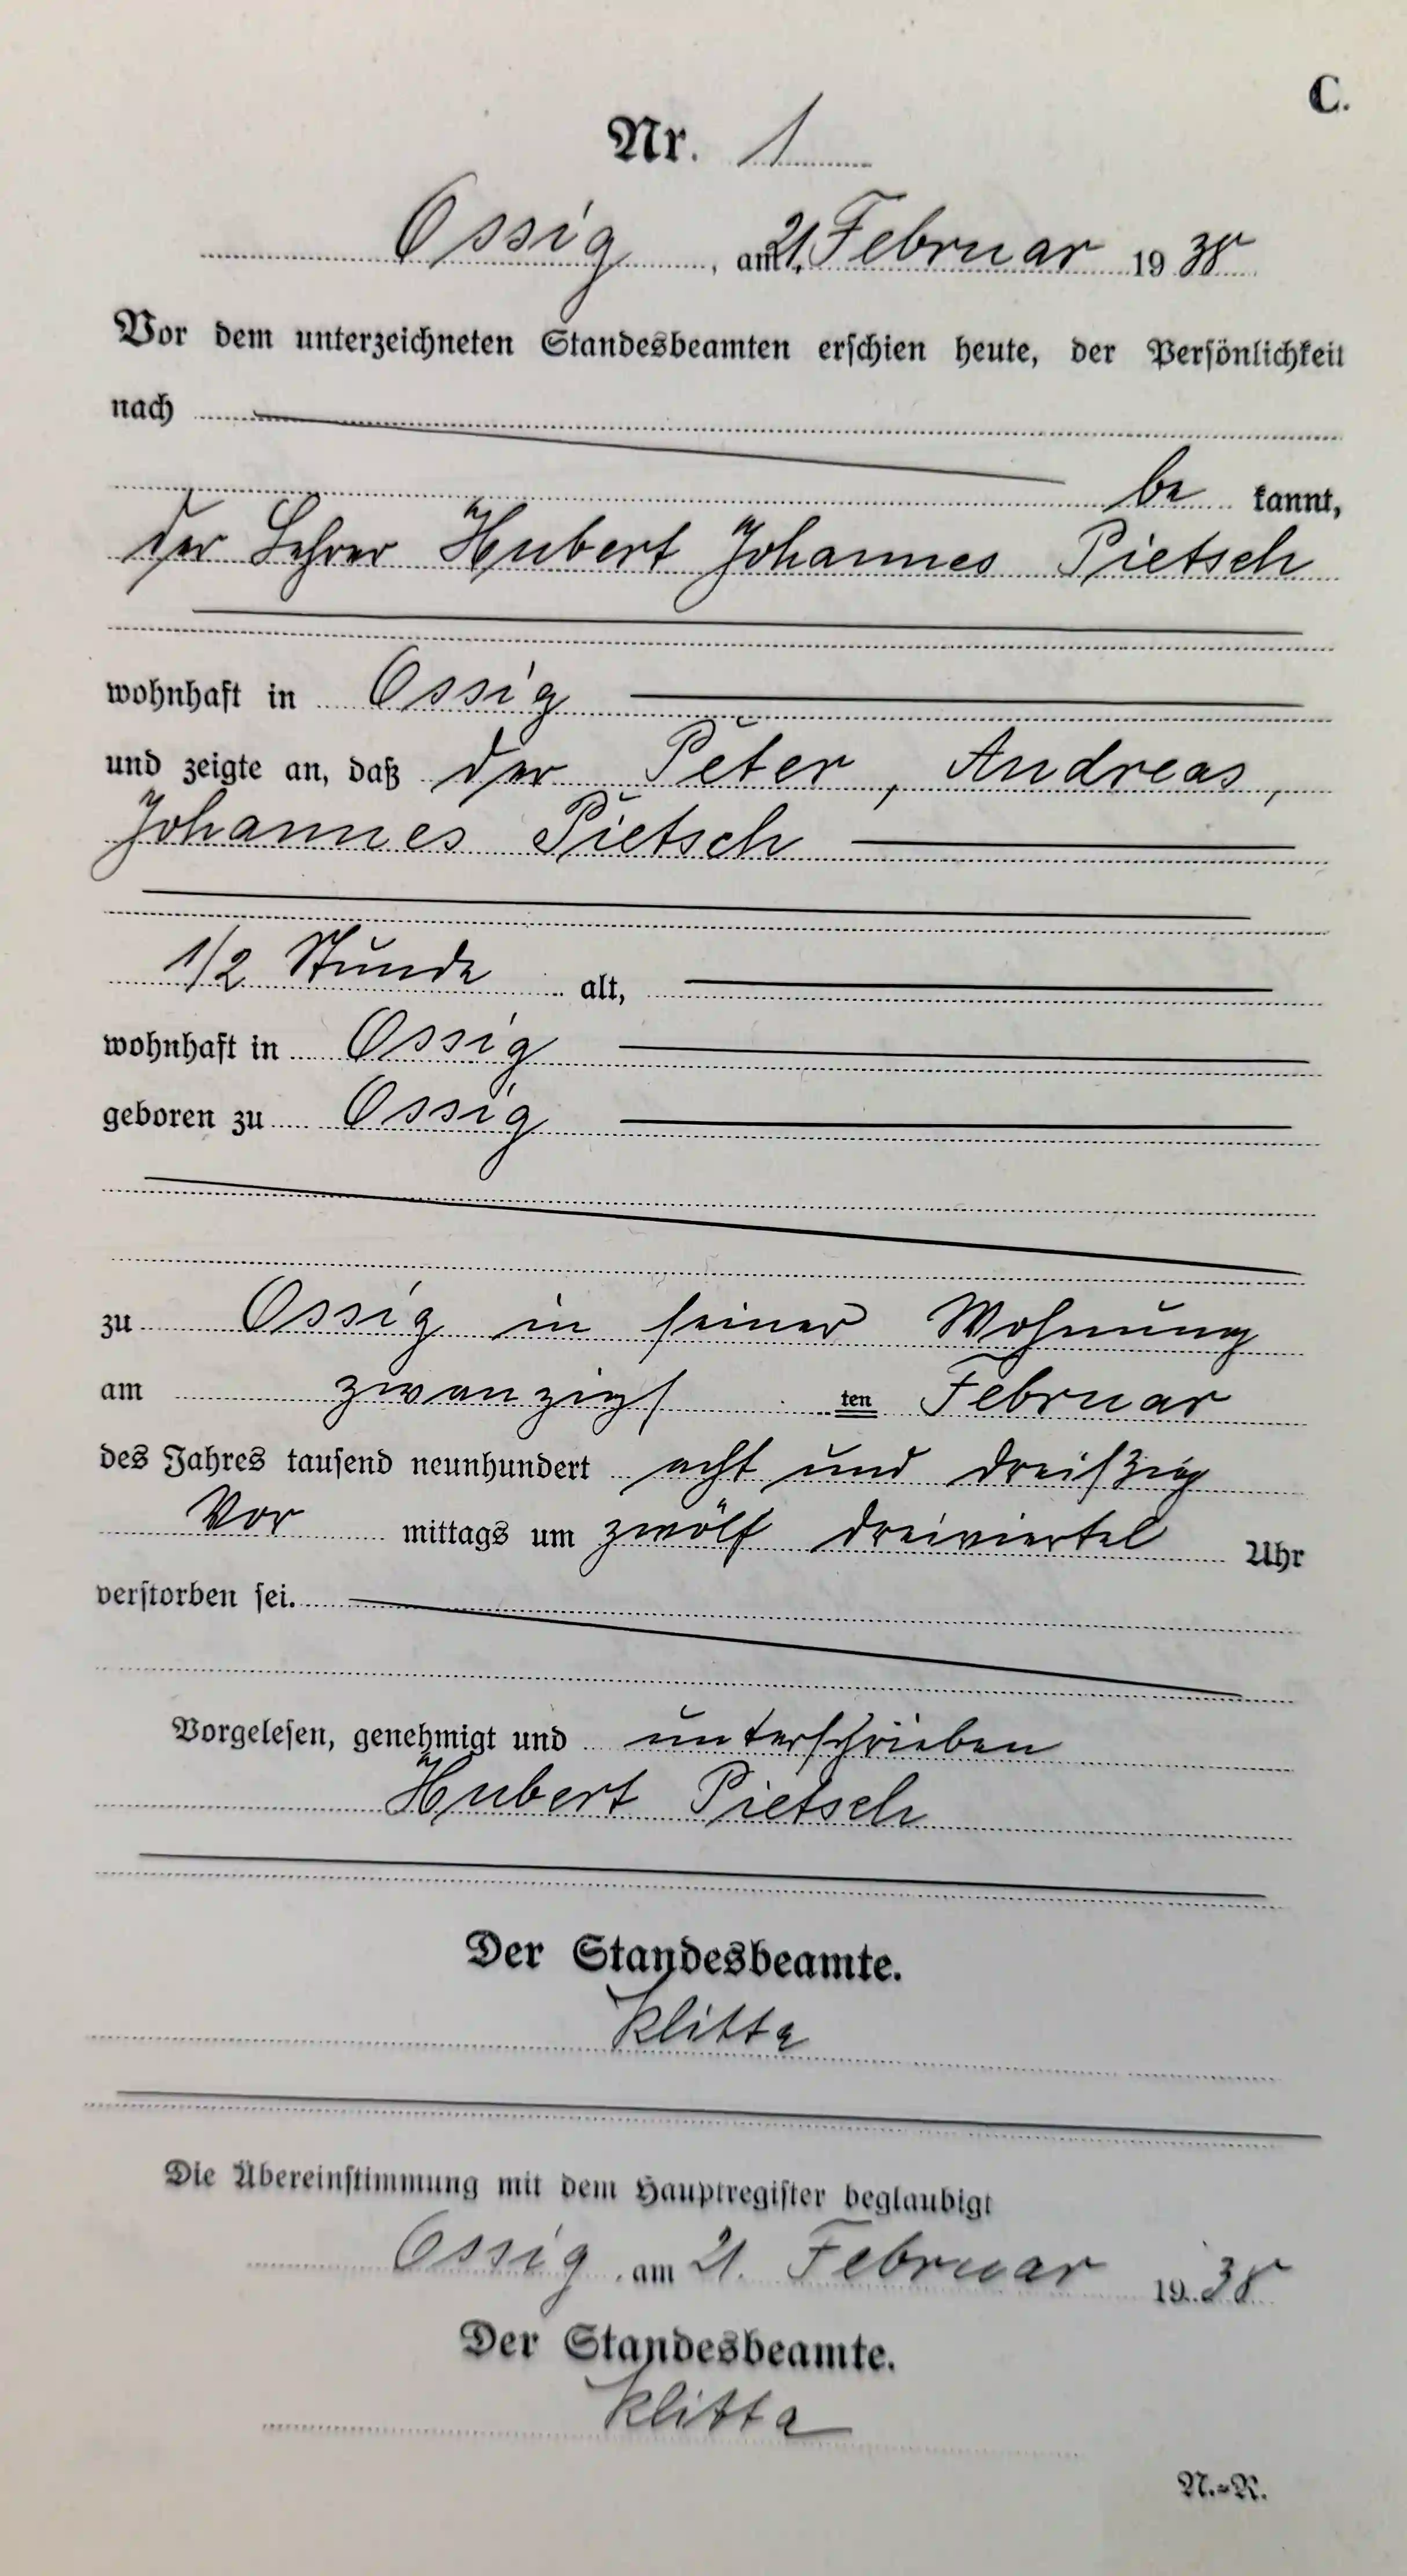 C.
Nr. 1
Ossig, am 21. Februar 1938
Vor dem unterzeichneten Standesbeamten erschien heute, der Persönlichkeit
nach
be kannt,
der Lehrer Hubert Johannes Pietsch
wohnhaft in Ossig
und zeigte an, daß der Peter, Andreas,
Johannes Pietsch
1/2 Stunde alt,
wohnhaft in Ossig
geboren zu Ossig
zu Ossig in seiner Wohnung
am zwanzigs ten Februar
des Jahres tausend neunhundert acht und dreißzig
Vor mittags um zwölf dreiviertel Uhr
verstorben sei.
Vorgelesen, genehmigt und unterschrieben
Hubert Pietsch
Der Standesbeamte.
Klitta
Die Übereinstimmung mit dem Hauptregister beglaubigt
Ossig, am 21. Februar 1938
Der Standesbeamte.
Klitta
N.=R.